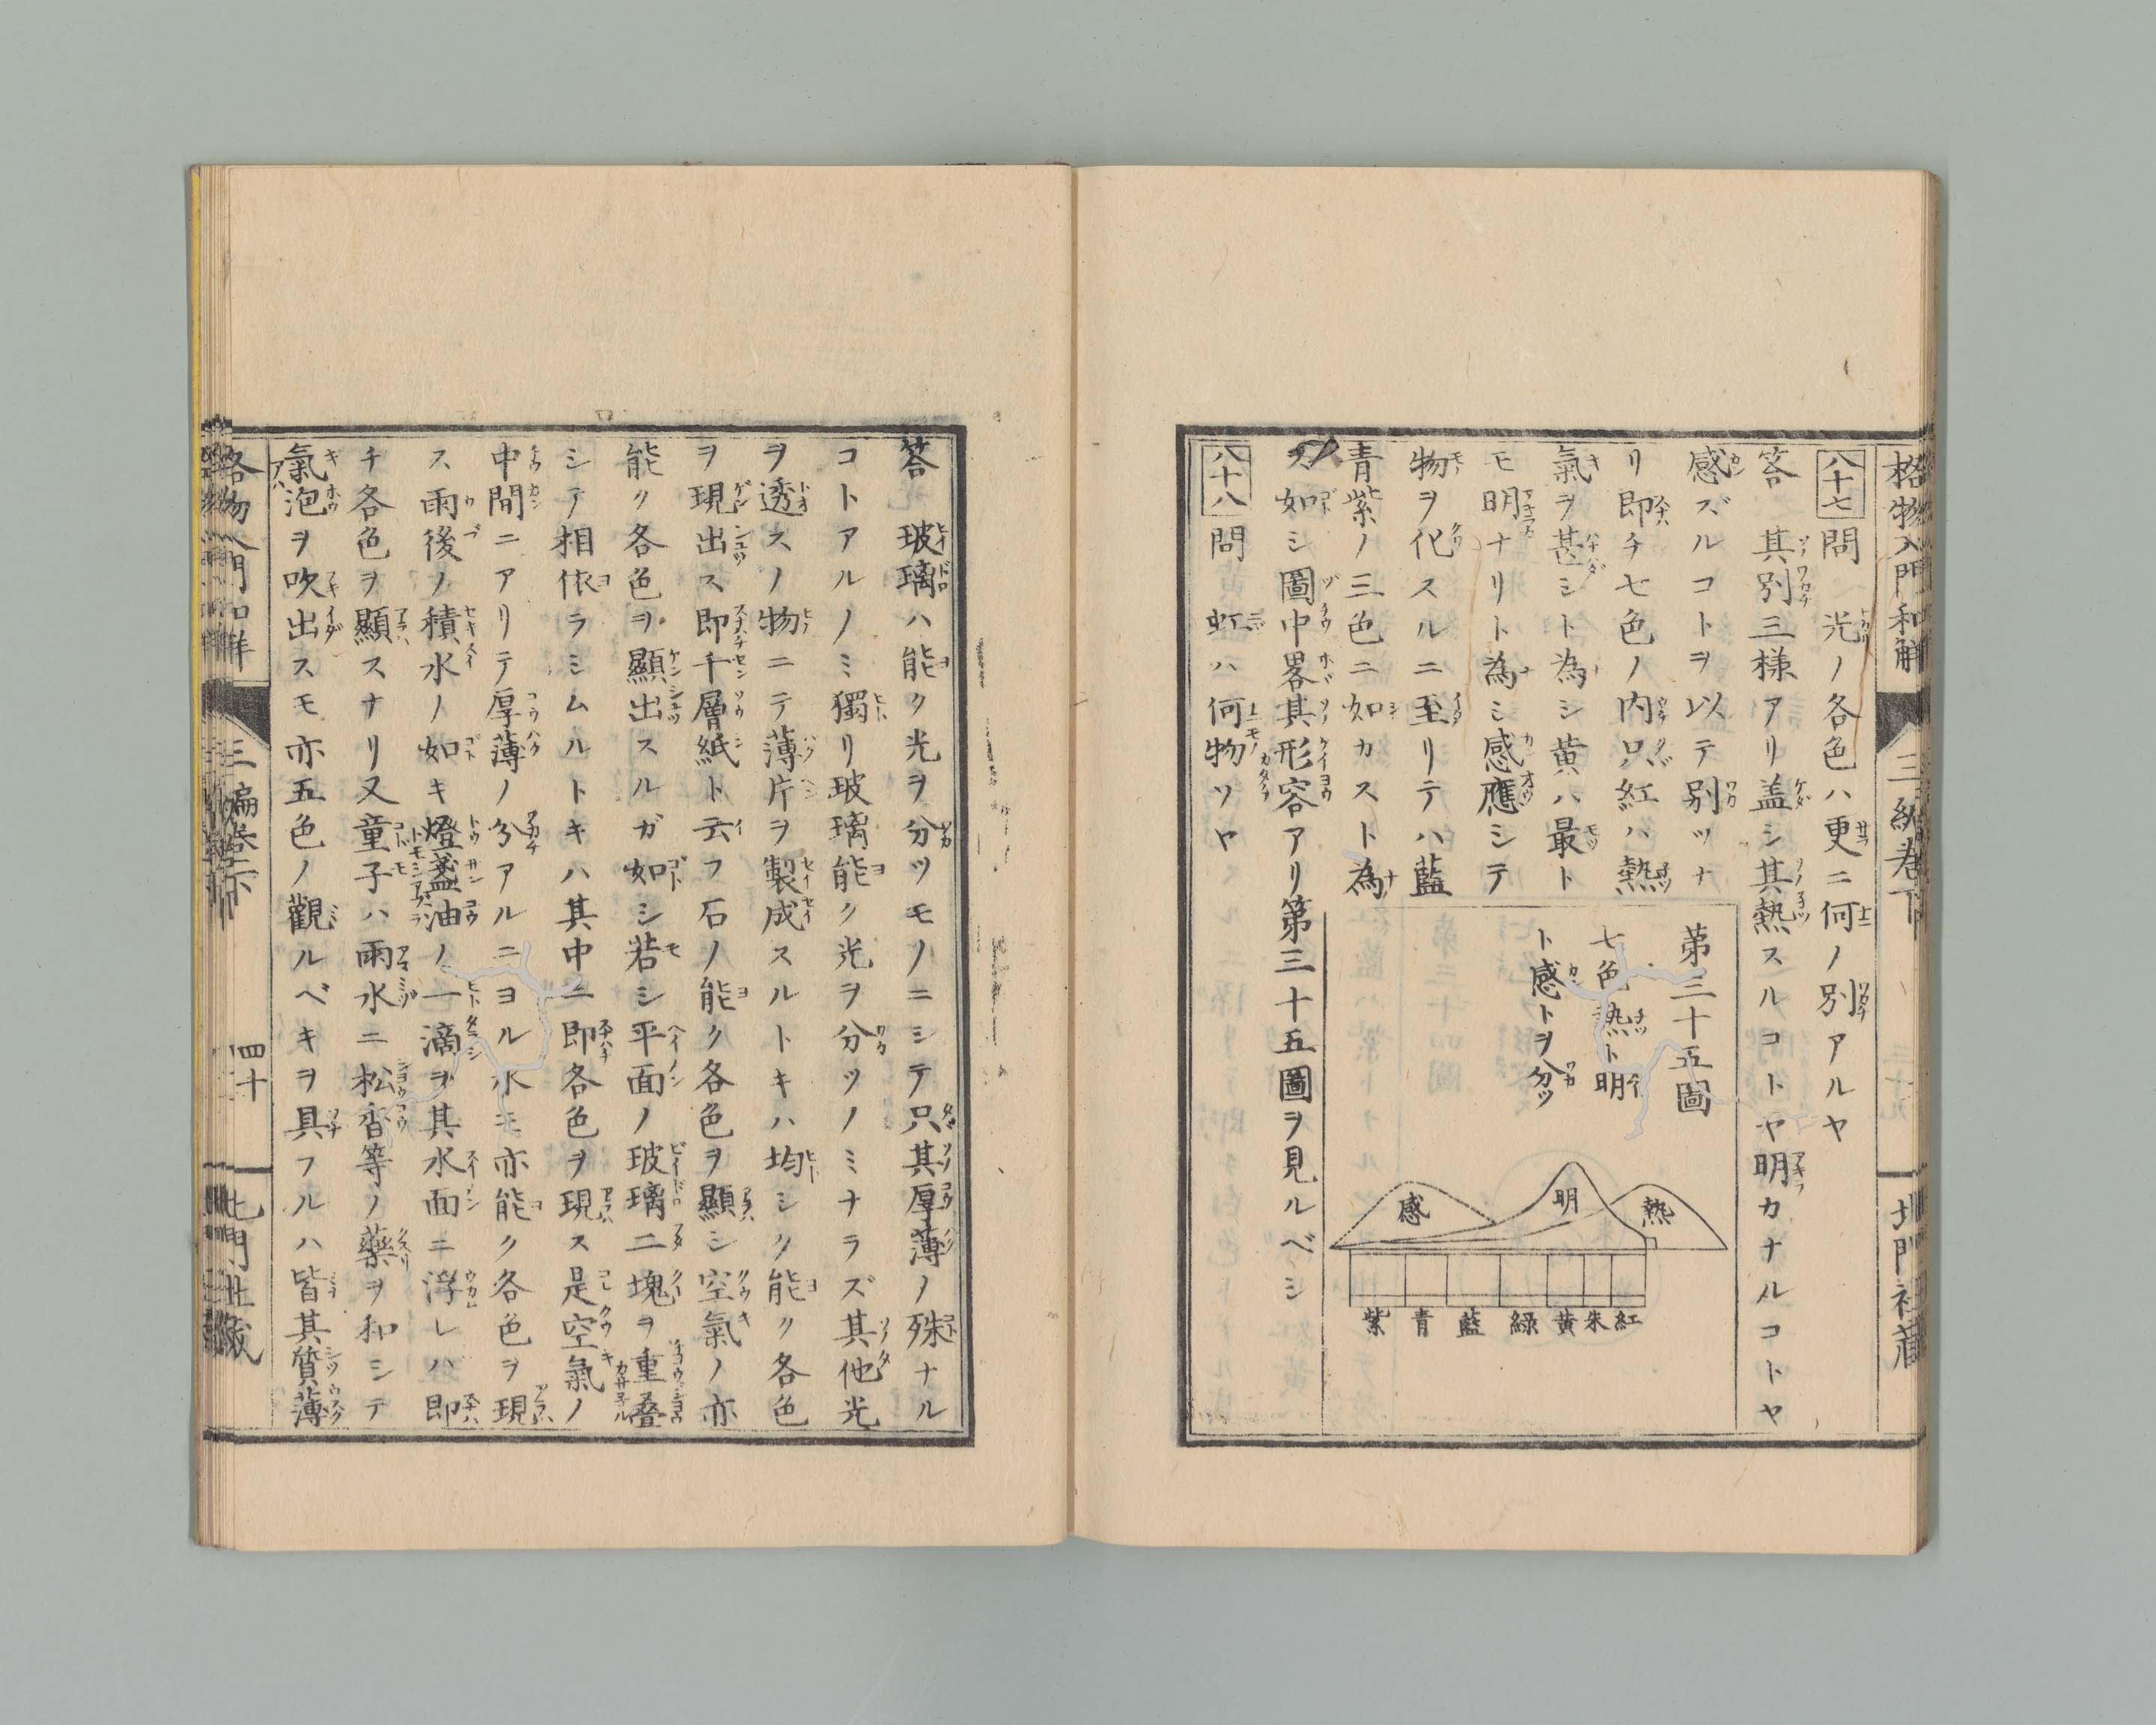 格物入門和解
三編卷下
北門社藏
八十七 問 光ノ各色ハ更ニ何ノ別アルヤ
答 其別三様アリ盖シ其熱スルコトヤ明カナルコトヤ
感ズルコトヲ以テ別ツナ
リ即チ七色ノ内只紅ハ熱
氣ヲ甚シト為シ黄ハ最ト
モ明ナリト為シ感應シテ
物ヲ化スルニ至リテハ藍
青紫ノ三色ニ如カスト為
ス如シ圖中畧其形容アリ第三十五圖ヲ見ルベシ
第三十五圖
七色熱ト明
ト感トヲ分ツ
熱
明
感
紅
朱
黄
綠
藍
青
紫
八十八 問 虹ハ何物ソヤ
答 玻璃ハ能ク光ヲ分ツモノニシテ只其厚薄ノ殊ナル
コトアルノミ獨リ玻璃能ク光ヲ分ツノミナラズ其他光
ヲ透スノ物ニテ薄片ヲ製成スルトキハ均シク能ク各色
ヲ現出ス即千層紙ト云フ石ノ能ク各色ヲ顯シ空氣ノ亦
能ク各色ヲ顯出スルガ如シ若シ平面ノ玻璃二塊ヲ重疊
シテ相依ラシムルトキハ其中ニ即各色ヲ現ス是空氣ノ
中間ニアリテ厚薄ノ分アルニヨル水モ亦能ク各色ヲ現
ス雨後ノ積水ノ如キ燈盞油ノ一滴ヲ其水面ニ浮レハ即
チ各色ヲ顯スナリ又童子ハ雨水ニ松香等ノ藥ヲ和シテ
氣泡ヲ吹出スモ亦五色ノ觀ルベキヲ具フルハ皆其質薄
格物入門和解
三編卷下
四十
北門社藏